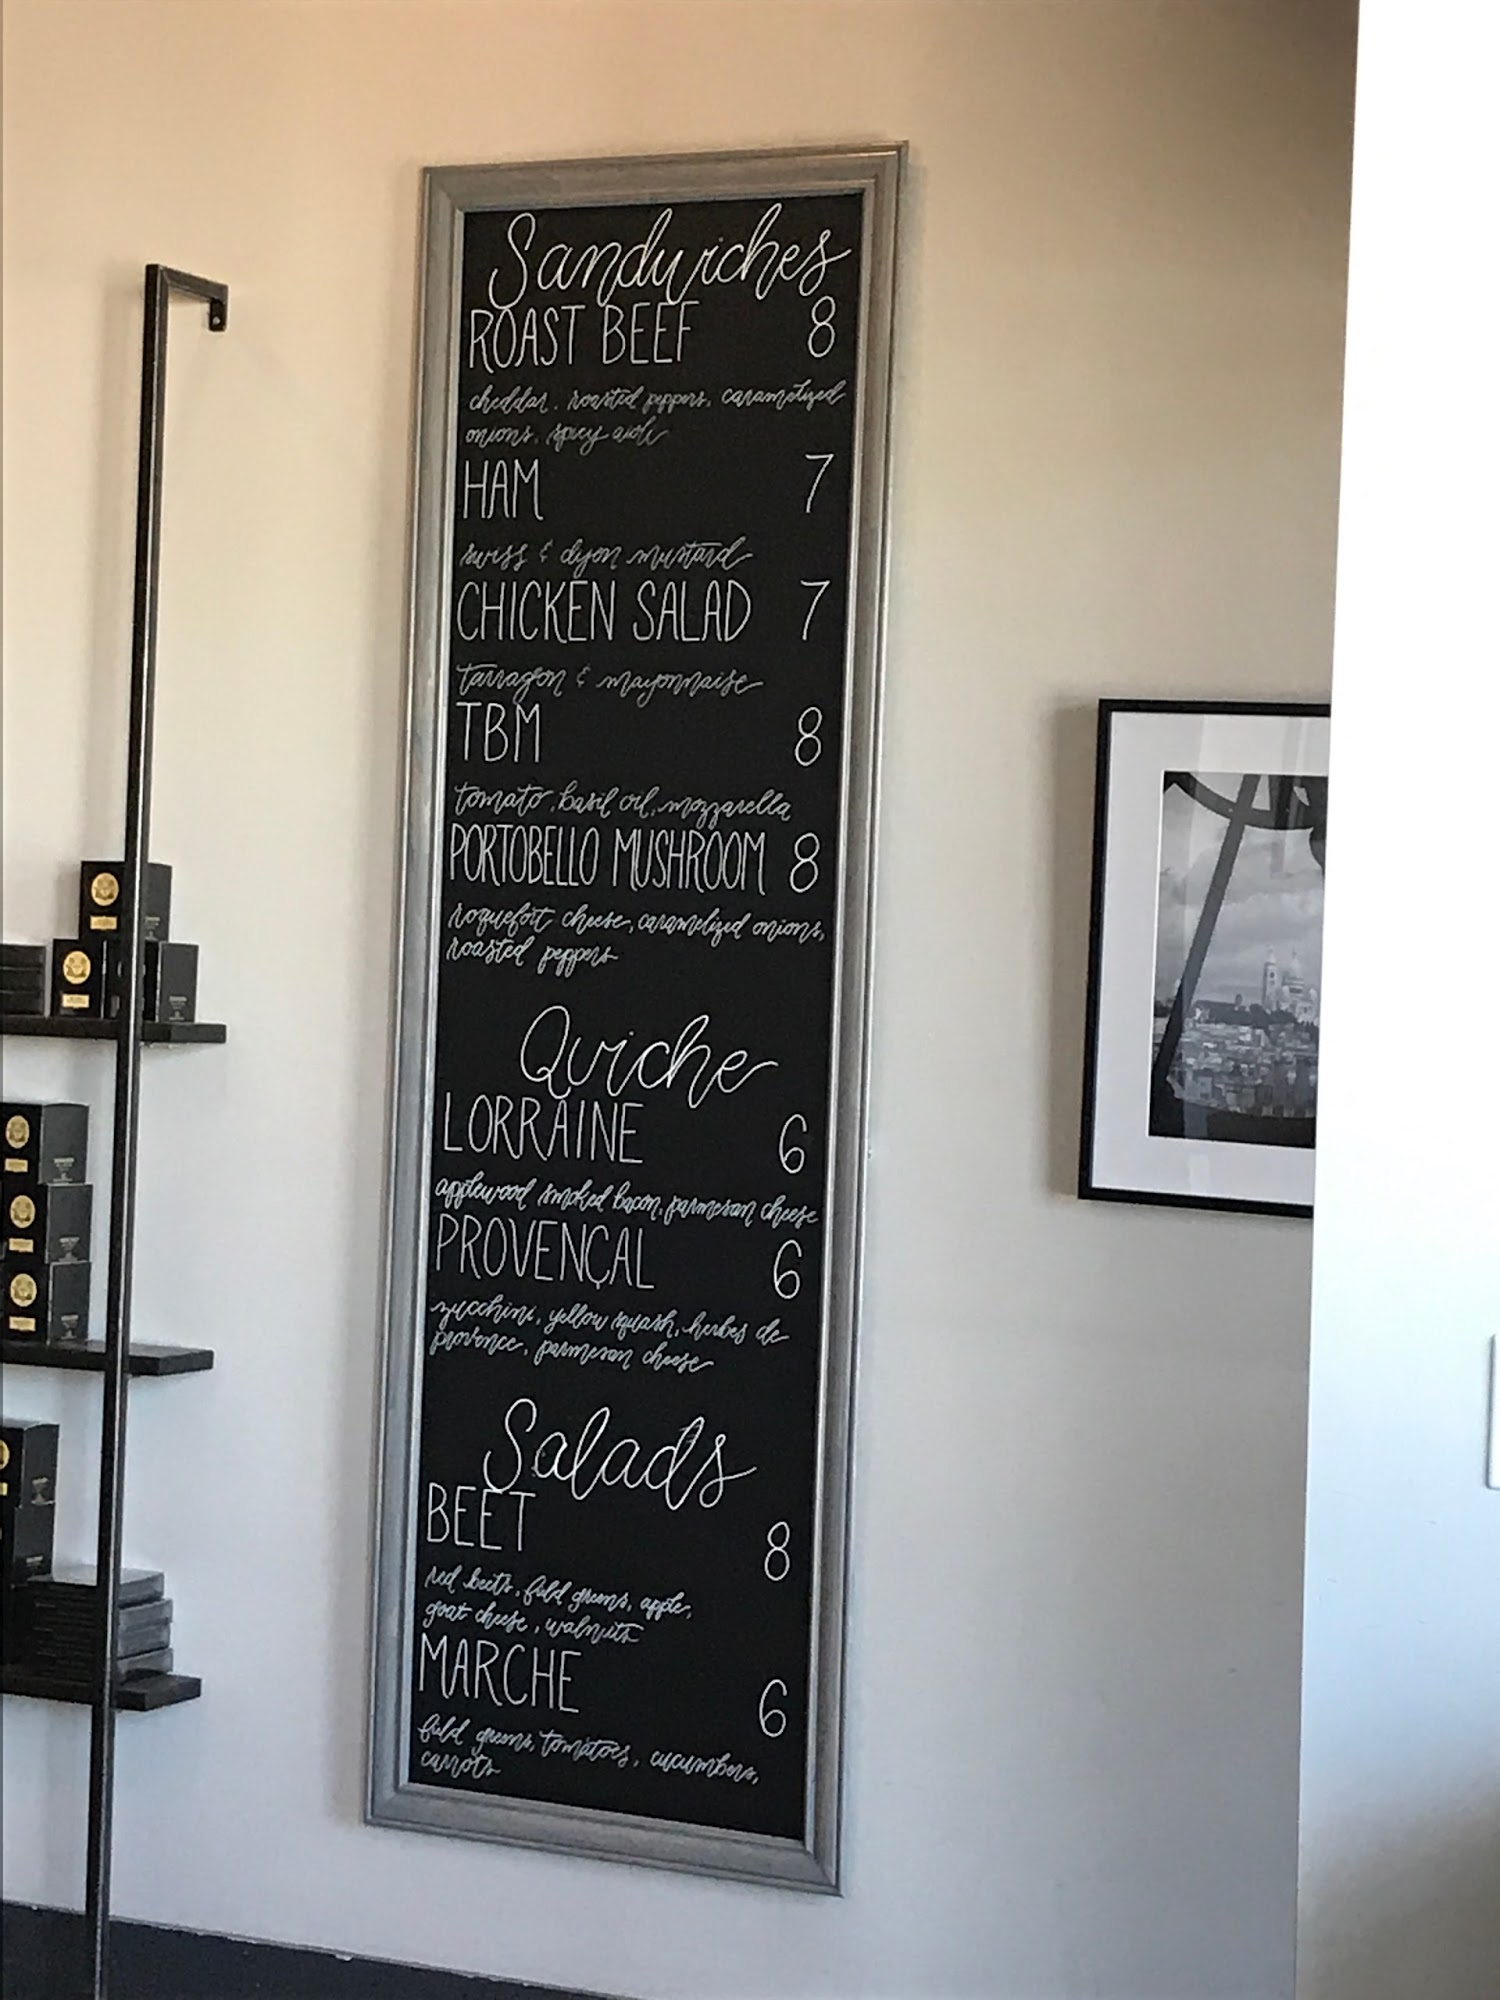 Sandwiches
ROAST BEEF 8
cheddar, roasted peppers, caramelized
onions, spicy aioli
HAM 7
swiss & dijon mustard
CHICKEN SALAD 7
tarragon & mayonnaise
TBM 8
tomato, basil oil, mozzarella
PORTOBELLO MUSHROOM 8
roquefort cheese, caramelized onions,
roasted peppers
Quiche
LORRAINE 6
applewood smoked bacon, parmesan cheese
PROVENÇAL 6
zucchini, yellow squash, herbes de
provence, parmesan cheese
Salads
BEET 8
red beets, field greens, apple,
goat cheese, walnuts
MARCHE 6
field greens, tomatoes, cucumbers,
carrots